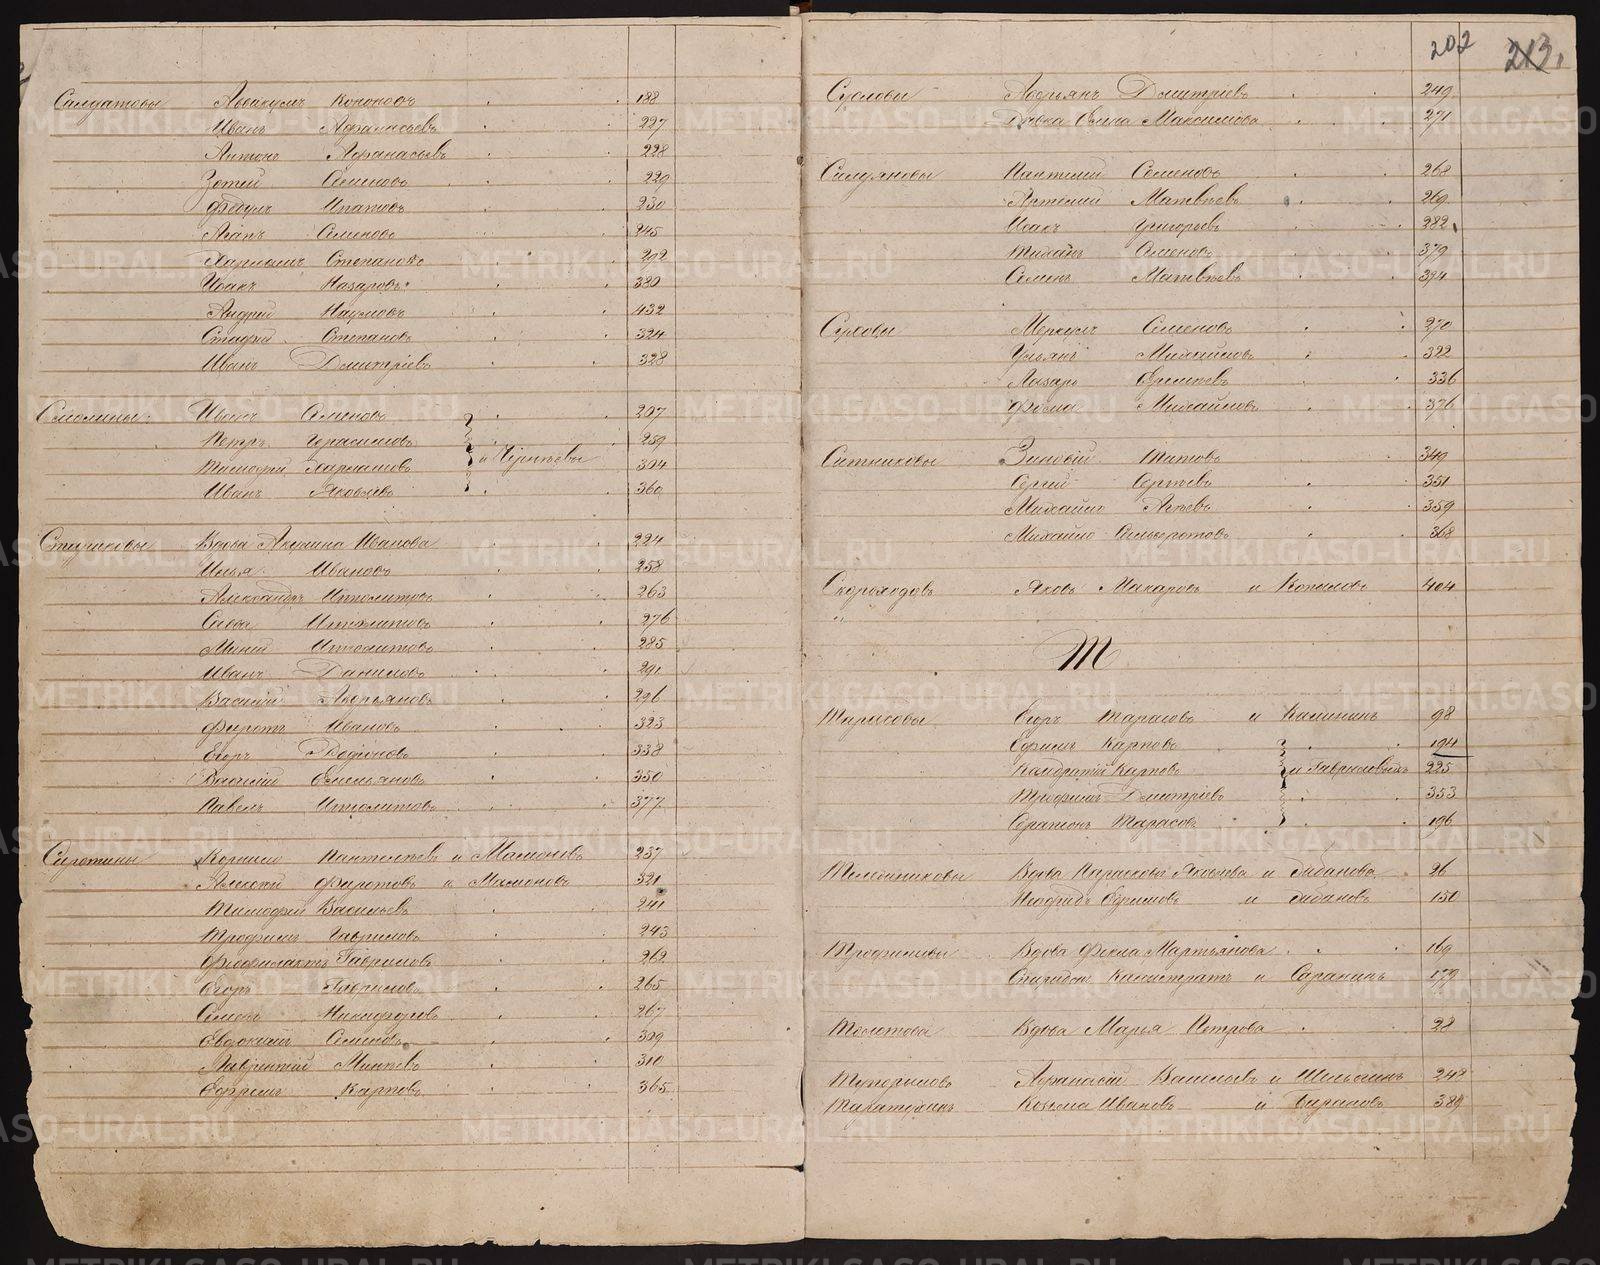 Салдатовы Аввакумъ Кононовъ 188
Иванъ Афанасьевъ 227
Антонъ Афанасьевъ 228
Зотей Семеновъ 229
Федулъ Ипатовъ 230
Агапъ Семеновъ 245
Харламъ Степановъ 292
Исакъ Назаровъ 380
Андрей Наумовъ 432
Степановъ 324
Иванъ Дмитріевъ 328
Смолины Иванъ Семеновъ 207
Петръ Герасимовъ 259
Тимофей Харламовъ и 304
Иванъ Яковлевъ 360
Вдова Акулина Иванова 224
Илья Ивановъ 258
Александръ Ипполитовъ 263
Савва Ипполитовъ 276
Миней Ипполитовъ 285
Иванъ Даниловъ 291
Василій Андрьяновъ 296
Ивановъ 323
Егоръ Родіоновъ 338
Василій Емельяновъ 350
Павелъ Ипполитовъ 377
Сиротины Корнило Пантелѣевъ и Мамоновъ 237
Алексѣй Федотовъ и Мамоновъ 321
Тимофей Васильевъ 241
Трофимъ Гавриловъ 243
Феофилактъ Гавриловъ 262
Егоръ Гавриловъ 265
Семенъ Никифоровъ 267
Евдокимъ Семеновъ 309
Лаврентій Минѣевъ 310
Ефремъ Карповъ 365
202
213
Сусловы Андрьянъ Дмитріевъ 249
Максимова 271
Силуяновы Пантелей Семеновъ 268
Артемій Матвѣевъ 269
Исакъ Григорьевъ 282
Михайло Семеновъ 379
Семенъ Матвѣевъ 394
Суховы Меркулъ Семеновъ 270
Ульянъ Михайловъ 322
Лазарь 336
Фома Михайловъ 376
Ситниковы Зиновій Титовъ 349
Сергѣй Сергѣевъ 351
Михайло Агѣевъ 359
Михайло Сильверстовъ 368
Скороходовъ Яковъ Макаровъ и Копыловъ 404
Т
Тарасовы Егоръ Тарасовъ и Калининъ 98
Ефимъ Карповъ 194
Кандратій Карповъ и Гавриловыхъ 225
Трофимъ Дмитріевъ 353
Тарасовъ 196
Вдова Парасковья Яковлева и 26
Ефимовъ и 150
Трофимовы Вдова Фекла Мартьянова 169
Спиридонъ Калистратъ и Саранинъ 179
Вдова Марья Петрова 28
Афанасій Васильевъ и 248
Козьма Ивановъ и 389